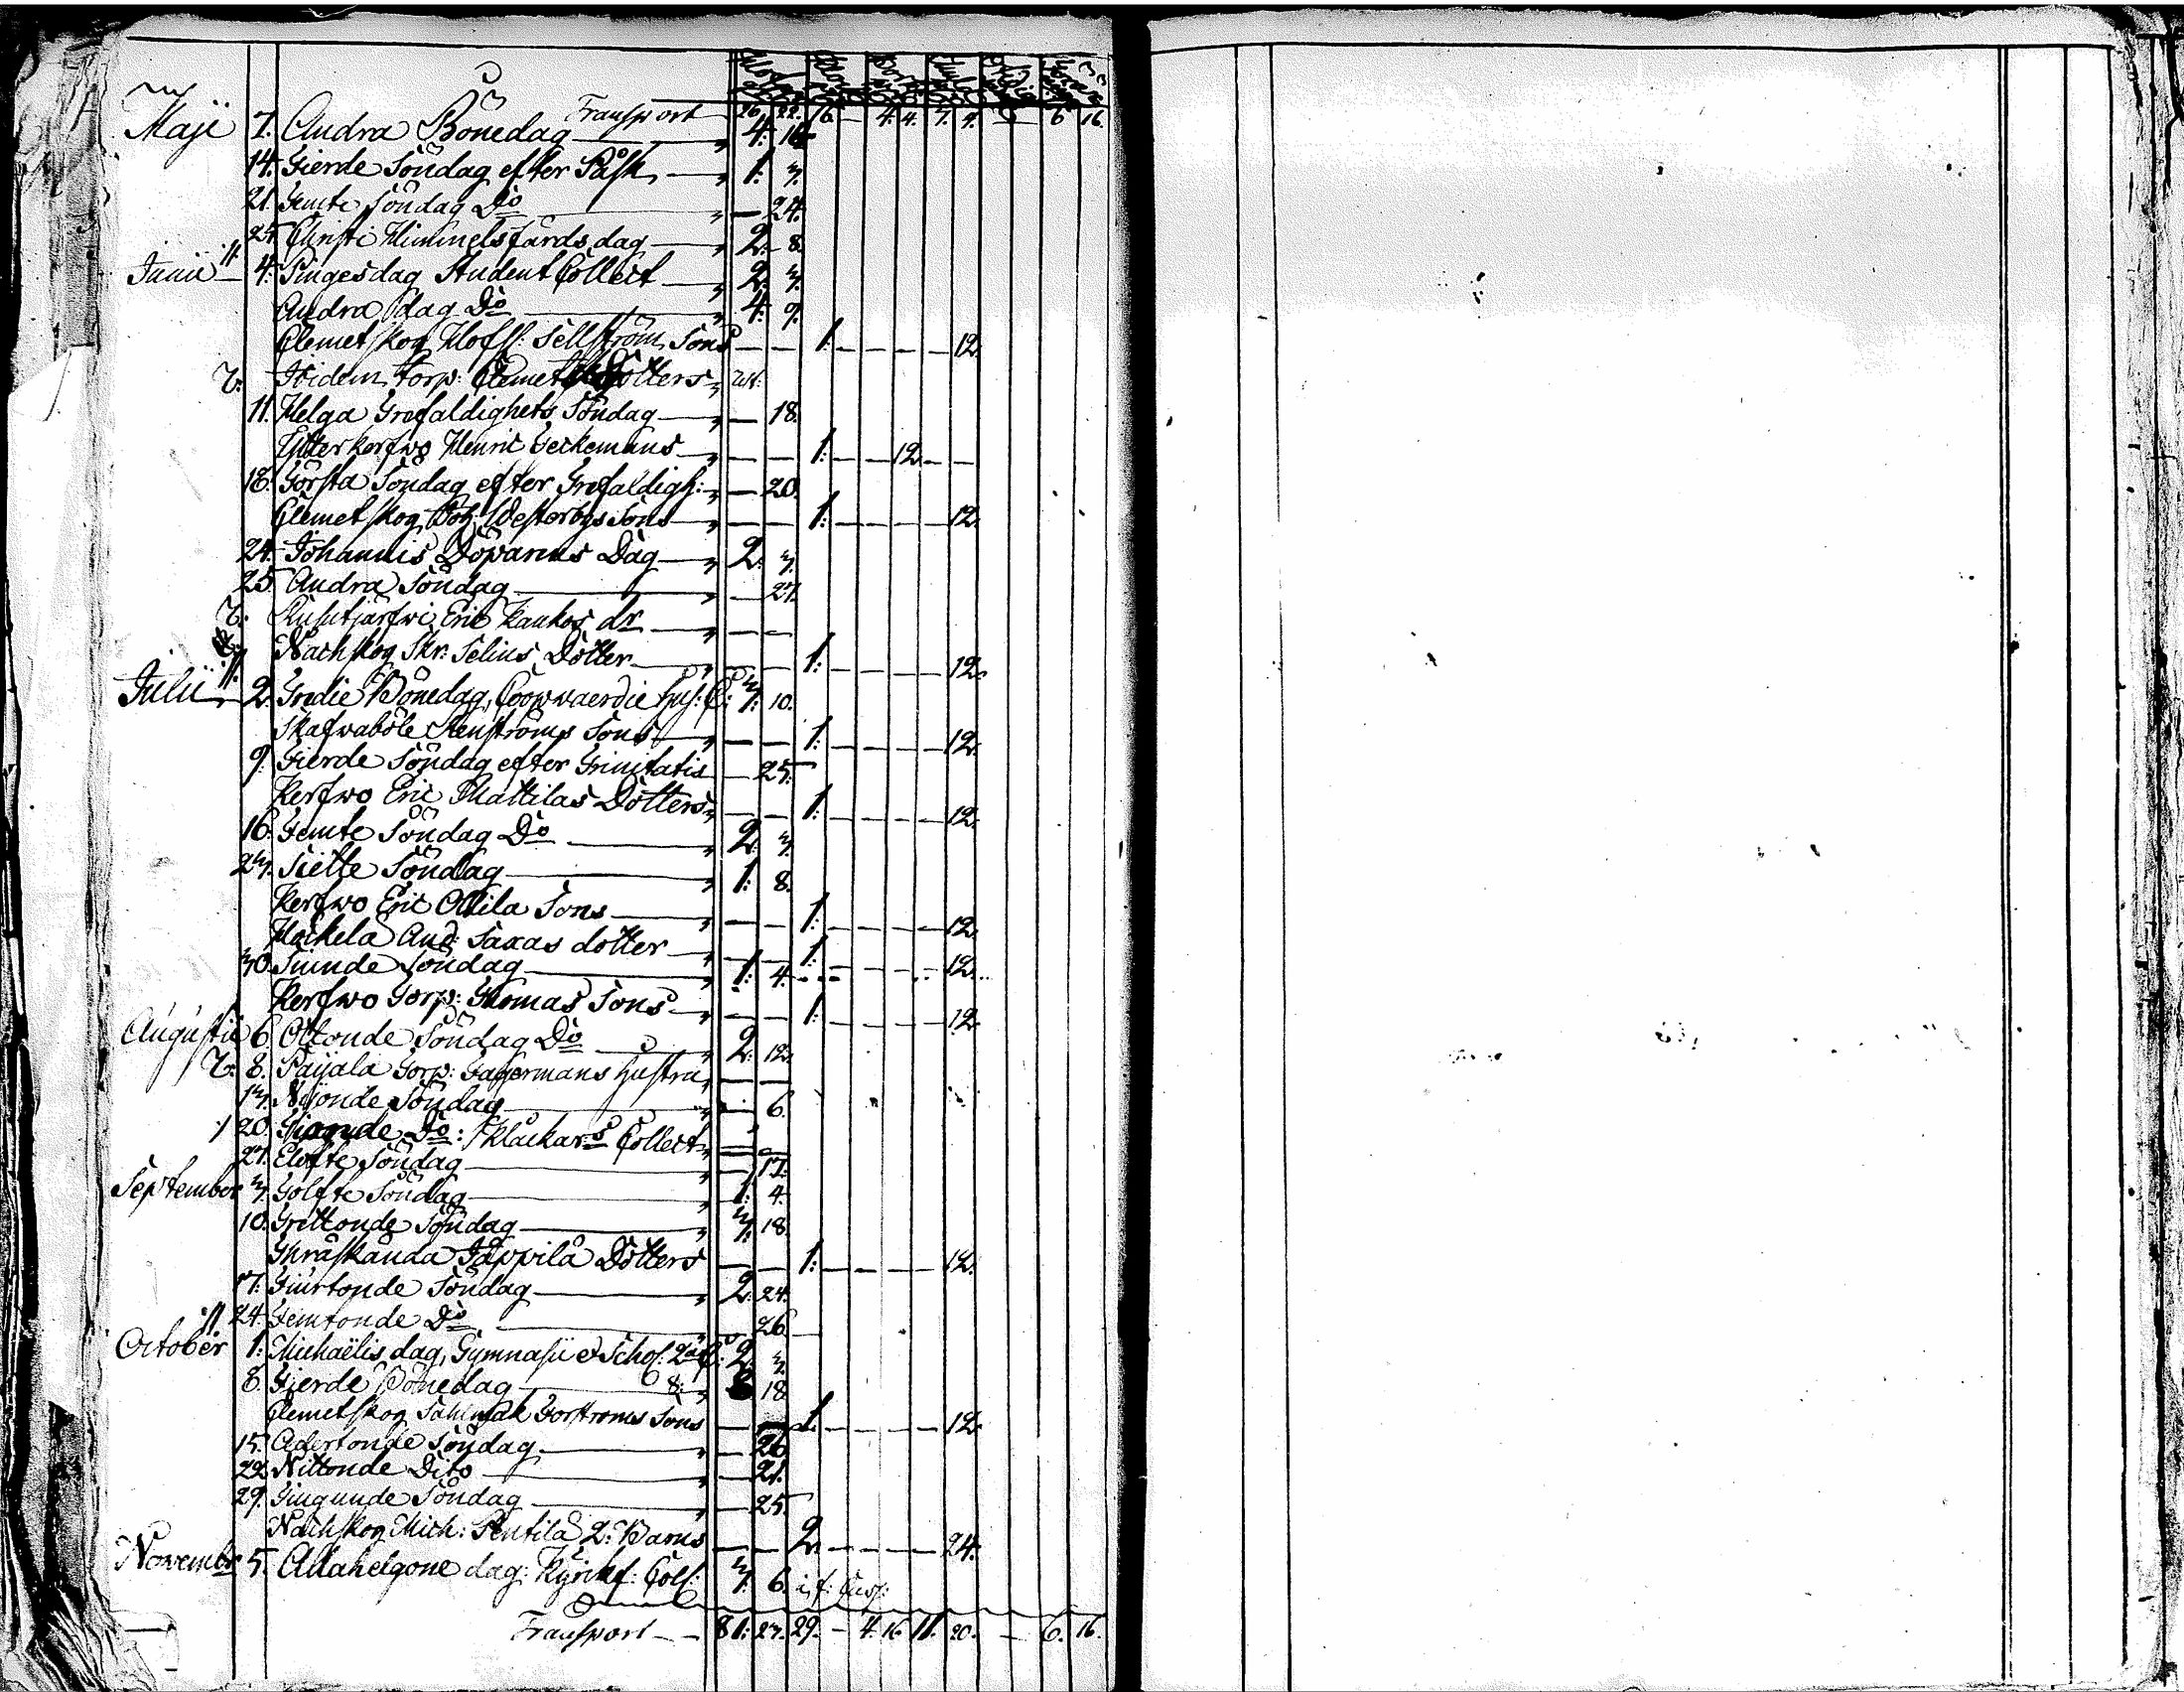 Transport 26. 22. 16. — 4. 4. 7. 4. — 6 16.
Maji 7. Andra Bönedag — 4: 16
14. Fierde Söndag efter Påsk — 1: 3.
21. Femte Söndag Do — 24.
25. Christi Himmelsfärds dag — 2: 8.
Junii 4. Pingesdag Student Collect — 2. 3.
Andra dag Do — 4: 9.
Clemetskog Sellström Sons — — 1: — — — — 12.
Ibidem Torp: Dotters
11. Helga Trefaldighets Söndag — 18.
Ytterkerfwo Henric — — 1: — — 12 — —
18. Första Söndag efter Trefaldigh: — 20.
Clemetskog Joh: Westerbys Sons — — 1: — — — — 12.
24. Johannis Döparens Dag — 2: 3.
25. Andra Söndag — 27.
Eric Kaukos dr — —
Nachskog Skr: Selins Dotter — — 1: — — — — 12.
Julii 2. Tredie Bönedag, Coopwaerdie Hus: C: 3: 10.
Skafwaböle Renströms Sons — — 1: — — — — 12.
9. Fierde Söndag efter Trinitatis — 25.
Kerfwo Eric Mattilas Dotters — — 1: — — — — 12.
16. Femte Söndag Do — 2. 3.
23. Siette Söndag — 1: 8.
Kerfwo Eric Ollila Sons — — 1: — — — — 12.
And: Saxas dotter — — 1: — — — — 12.
30. Siunde Söndag — 1: 4.
Kerfwo Torp: Thomas Sons — — 1: — — — — 12
Augustii 6. Ottonde Söndag Do — 2. 12.
8. Paijala Torp: Fagermans hustru — —
13. Nijonde Söndag — 6.
20. Tijonde Do: Collect — —
27. Elofte Söndag — 17.
September 3. Tolfte Söndag — 1: 4.
10. Trettonde Söndag — 3: 18.
Thräskända Jäppilä Dotters — — 1: — — — — 12.
17. Fiurtonde Söndag — 2. 24.
24. Femtonde Do — 26.
October 1: Michaëlis dag, Gymnasii & Schol: C: 2: 3.
8. Fierde Bönedag — 8: 18
Clemetskog Forströms Sons — — 1. — — — — 12
15. Adertonde Söndag — 26
22. Nittonde Dito — 21.
29. Tiugunde Söndag — 25
Nachskog Mich: Pentilä 2: Barns — — 2. — — — — 24.
Novembr 5. Allahelgone dag: Kyrik: Coll: 3: 6.
Transport — 81: 27. 29. — 4. 16 11. 20. — 6. 16.